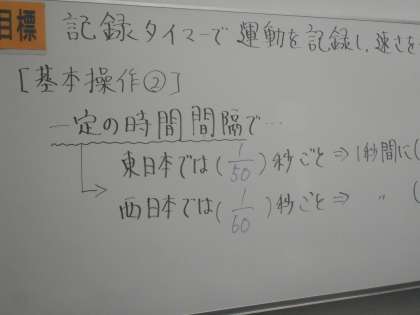 目標 記録タイマーで運動を記録し、速さを
[基本操作②]
一定の時間間隔で…
東日本では(1/50)秒ごと⇒1秒間に(
西日本では(1/60)秒ごと⇒ 〃 (